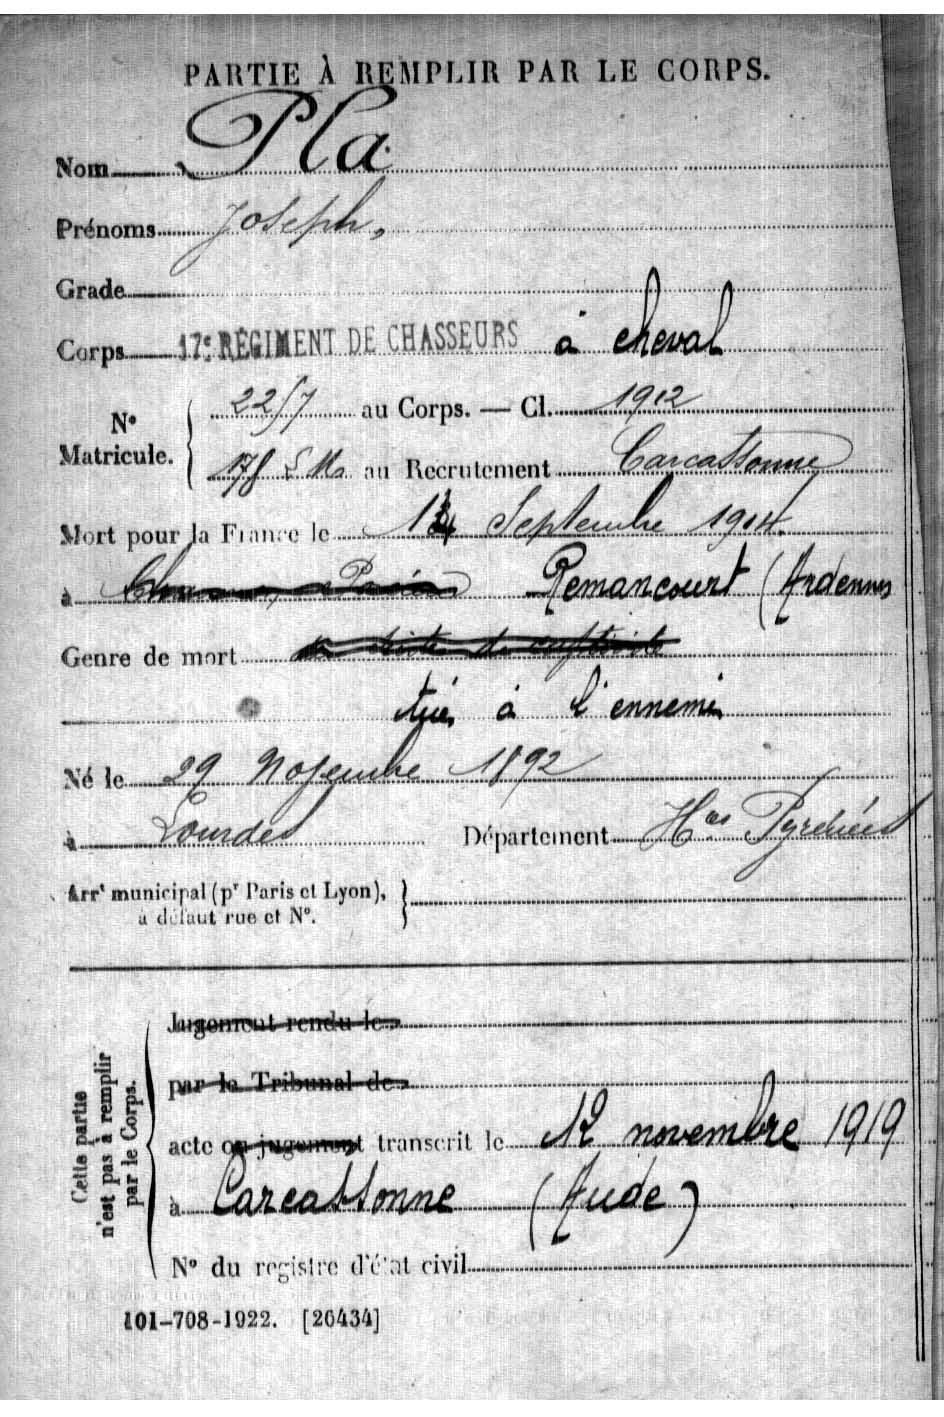 PARTIE À REMPLIR PAR LE CORPS.
Nom Pla
Prénoms Joseph,
Grade
Corps 17e RÉGIMENT DE CHASSEURS à cheval
No Matricule. 22/7 au Corps. — Cl. 1912
au Recrutement Carcassonne
Mort pour la France le Septembre 1914.
à Remancourt (Ardennes
Genre de mort
tué à l'ennemi
Né le 29 Novembre 1892
à Lourdes Département Htes Pyrénées
Arrt municipal (pr Paris et Lyon),
à défaut rue et No.
Cette partie
n'est pas à remplir
par le Corps.
Jugement rendu le
par le Tribunal de
acte ou jugement transcrit le 12 novembre 1919
à Carcassonne (Aude)
No du registre d'état civil
101-708-1922. [26434]